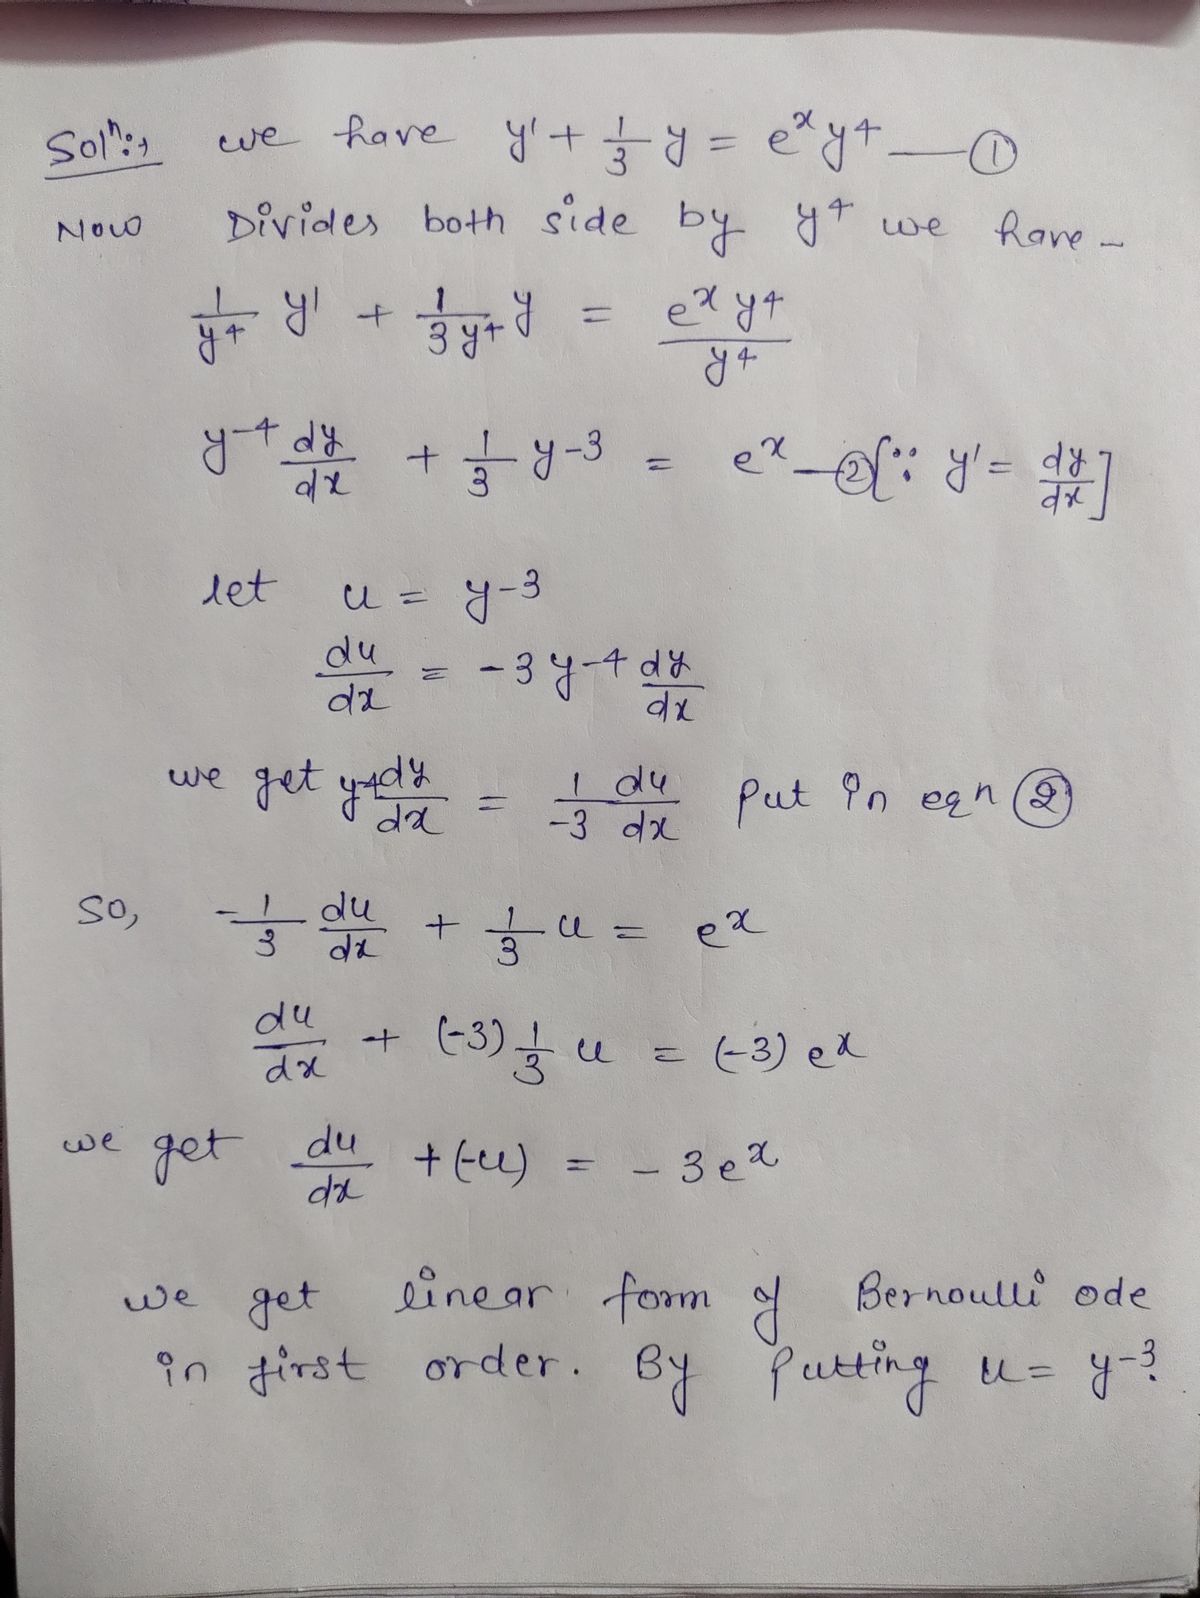 Solⁿ:→ we have y' + 1/3 y = eˣy⁴ — ①
Now Divides both side by y⁴ we have -
1/y⁴ y' + 1/3y⁴ y = eˣ y⁴ / y⁴
y⁻⁴ dy/dx + 1/3 y⁻³ = eˣ — ② [∵ y' = dy/dx]
let u = y⁻³
du/dx = -3 y⁻⁴ dy/dx
we get y⁻⁴ dy/dx = 1/-3 du/dx put in eqn ②
so, -1/3 du/dx + 1/3 u = eˣ
du/dx + (-3) 1/3 u = (-3) eˣ
we get du/dx + (-u) = - 3eˣ
we get linear form of Bernoulli ode
in first order. By putting u = y⁻³.